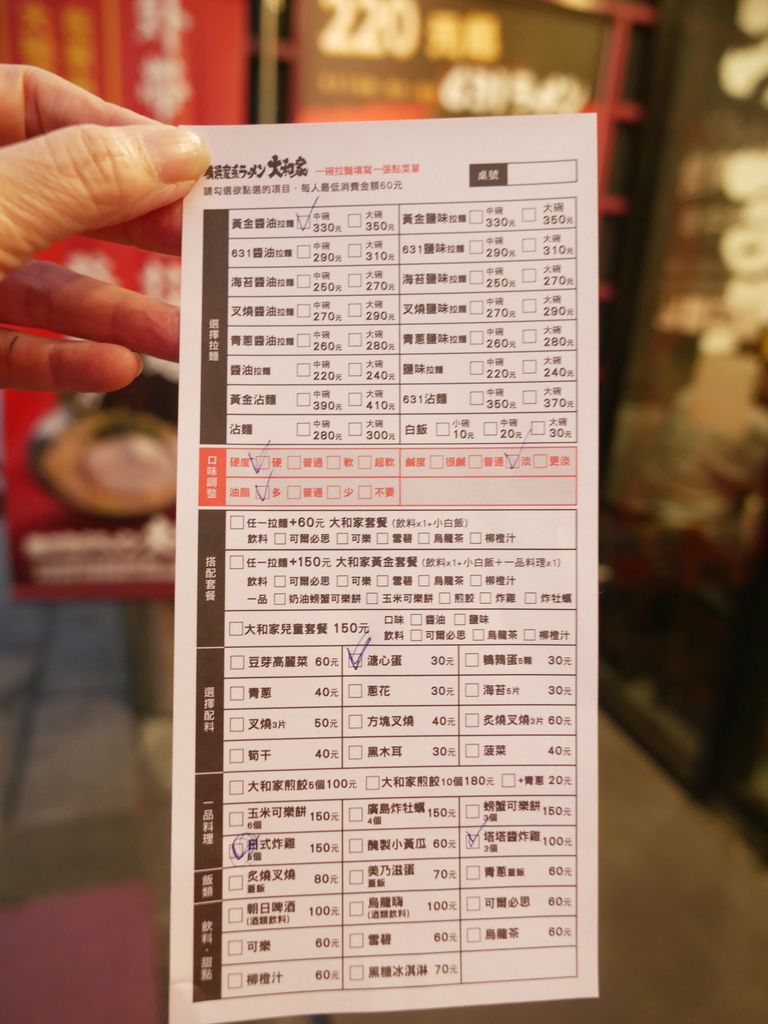 220
631ラーメン
橫浜家系ラーメン 大和家 一碗拉麵填寫一張點菜單
桌號
請勾選欲點選的項目，每人最低消費金額60元
選擇拉麵
黃金醬油拉麵 中碗 330元 大碗 350元 黃金鹽味拉麵 中碗 330元 大碗 350元
631醬油拉麵 中碗 290元 大碗 310元 631鹽味拉麵 中碗 290元 大碗 310元
海苔醬油拉麵 中碗 250元 大碗 270元 海苔鹽味拉麵 中碗 250元 大碗 270元
叉燒醬油拉麵 中碗 270元 大碗 290元 叉燒鹽味拉麵 中碗 270元 大碗 290元
青蔥醬油拉麵 中碗 260元 大碗 280元 青蔥鹽味拉麵 中碗 260元 大碗 280元
醬油拉麵 中碗 220元 大碗 240元 鹽味拉麵 中碗 220元 大碗 240元
黃金沾麵 中碗 390元 大碗 410元 631沾麵 中碗 350元 大碗 370元
沾麵 中碗 280元 大碗 300元 白飯 小碗 10元 中碗 20元 大碗 30元
口味調整
硬度 硬 普通 軟 超軟 鹹度 很鹹 普通 淡 更淡
油脂 多 普通 少 不要
搭配套餐
任一拉麵+60元 大和家套餐 (飲料x1+小白飯)
飲料 可爾必思 可樂 雪碧 烏龍茶 柳橙汁
任一拉麵+150元 大和家黃金套餐 (飲料x1+小白飯+一品料理x1)
飲料 可爾必思 可樂 雪碧 烏龍茶 柳橙汁
一品 奶油螃蟹可樂餅 玉米可樂餅 煎餃 炸雞 炸牡蠣
大和家兒童套餐 150元 口味 醬油 鹽味
飲料 可爾必思 烏龍茶 柳橙汁
選擇配料
豆芽高麗菜 60元 溏心蛋 30元 鵪鶉蛋5顆 30元
青蔥 40元 蔥花 30元 海苔5片 30元
叉燒3片 50元 方塊叉燒 40元 炙燒叉燒3片 60元
筍干 40元 黑木耳 30元 菠菜 40元
一品料理
大和家煎餃5個100元 大和家煎餃10個180元 +青蔥 20元
玉米可樂餅 6個 150元 廣島炸牡蠣 4個 150元 螃蟹可樂餅 3個 150元
日式炸雞 5個 150元 醃製小黃瓜 60元 塔塔醬炸雞 3個 100元
飯類
炙燒叉燒 蓋飯 80元 美乃滋蛋 蓋飯 70元 青蔥蓋飯 60元
飲料・甜點
朝日啤酒 (酒類飲料) 100元 烏龍嗨 (酒類飲料) 100元 可爾必思 60元
可樂 60元 雪碧 60元 烏龍茶 60元
柳橙汁 60元 黑糖冰淇淋 70元